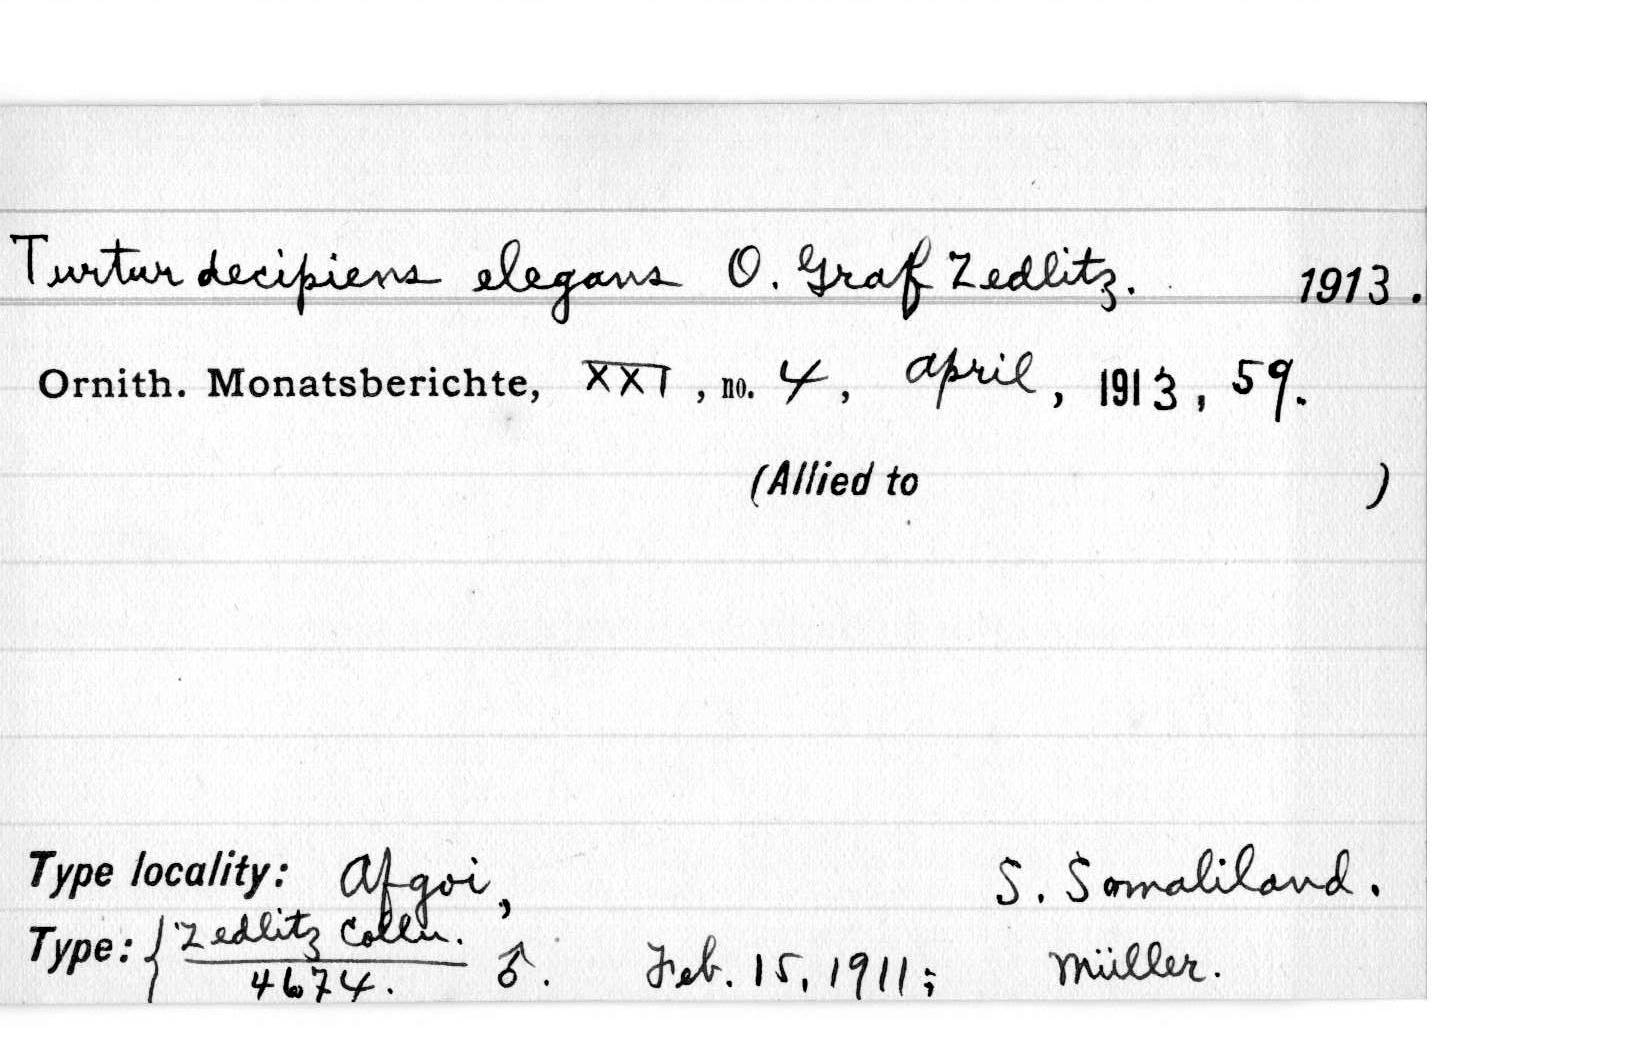 Turtur decipiens elegans O. Graf Zedlitz. 1913.
Ornith. Monatsberichte, XXI, no. 4, April, 1913, 59.
(Allied to )
Type locality: Afgoi, S. Somaliland.
Type: { Zedlitz Colln. / 4674. ♂. Feb. 15, 1911; Müller.